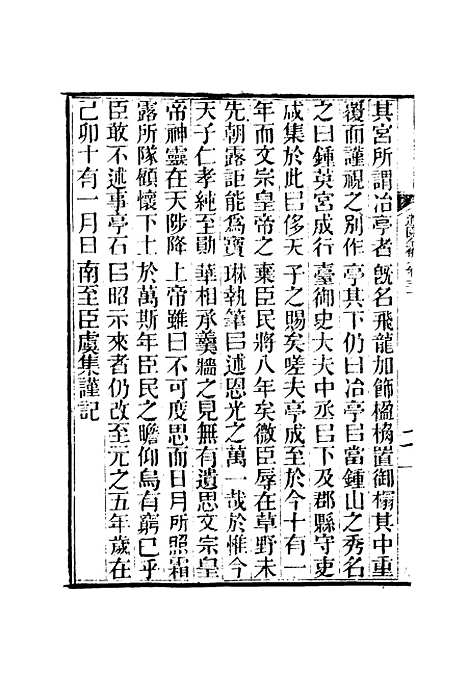 其宮所謂冶亭者旣名飛龍加飾楹桷置御榻其中重
覆而謹視之別作亭其下仍㠯冶亭㠯當鍾山之秀名
之曰鍾英宮成行臺御史大夫中丞㠯下及郡縣守吏
咸集於此㠯侈天子之賜矣嗟夫亭成至於今十有一
年而文宗皇帝之棄臣民將八年矣微臣辱在草野未
先朝露詎能爲寶琳執筆㠯述恩光之萬一哉於惟今
天子仁孝純至勛華相承羹牆之見無有遺思文宗皇
帝神靈在天陟降上帝雖曰不可度思而日月所照霜
露所隊傾懷下土於萬斯年臣民之瞻仰烏有窮已乎
臣敢不述事亭石㠯昭示來者仍改至元之五年歲在
己卯十有一月日南至臣虞集謹記